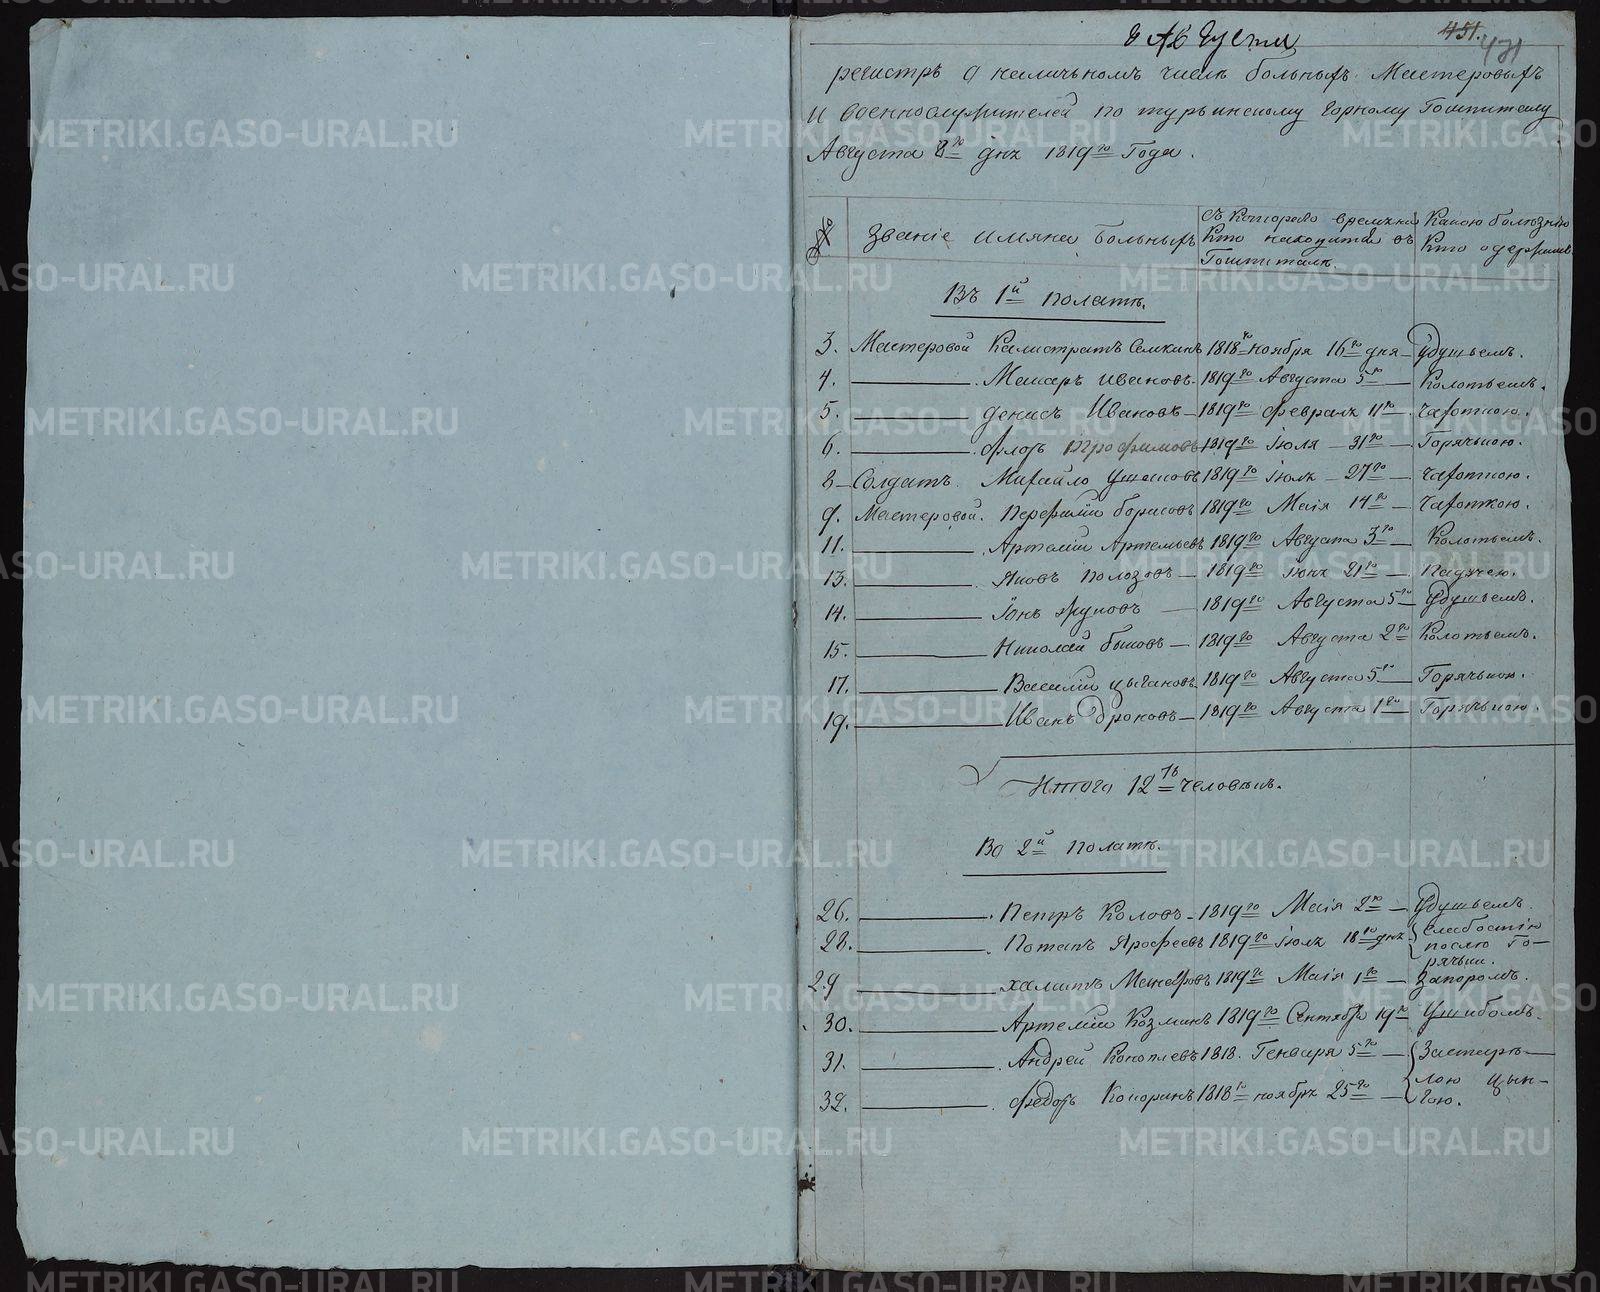 8 Августа
451.
431
регистръ о наличномъ числѣ больныхъ Мастеровыхъ
и военнослужителей по турьинскому горному Гошпиталу
Августа 8го дня 1819го Года.
№
Званіе имяна больныхъ
съ котораго времяни кто находится въ Гошпиталѣ.
Какою болѣзнію кто одержимъ.
Въ 1й полатѣ.
3. Мастеровой Калистратъ Семкинъ 1818го ноября 16го дня Удушьемъ.
4. Ивановъ 1819го Августа 5го Колотьемъ.
5. денисъ Ивановъ 1819го февраля 11го чахоткою.
6. флоръ трофимовъ 1819го Іюля 31го Горячкою.
8 Солдатъ Михайло Ушаковъ 1819го Іюля 27го чахоткою.
9. Мастеровой. Перфилій борисовъ 1819го Маія 14го чахоткою.
11. Артемій Артемьевъ 1819го Августа 3го Колотьемъ.
13. Яковъ Полозовъ 1819го Іюня 21го Падучею.
14. Іонъ жуковъ 1819го Августа 5го Удушьемъ.
15. Николай быковъ 1819го Августа 2го Колотьемъ.
17. Василій цыгановъ 1819го Августа 5го Горячкою.
19. Иванъ Дроновъ 1819го Августа 1го Горячкою.
Итого 12ть человѣкъ.
Во 2й полатѣ.
26. Петръ Коловъ 1819го Маія 2го Удушьемъ.
28. Потапъ Ярофеевъ 1819го Іюля 18го дня слабостію
послѣ Го-
рячки.
29 халитъ 1819го Маія 1го Запоромъ.
30. Артемій Козминъ 1819го Сентября 19го Ушибомъ.
31. Андрей Коноплевъ 1818. Генваря 5го Застарѣ-
лою цын-
гою.
32. федоръ Кокоринъ 1818го ноября 25го
METRIKI.GASO-URAL.RU